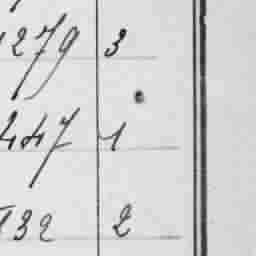 1279 3
447 1
132 2